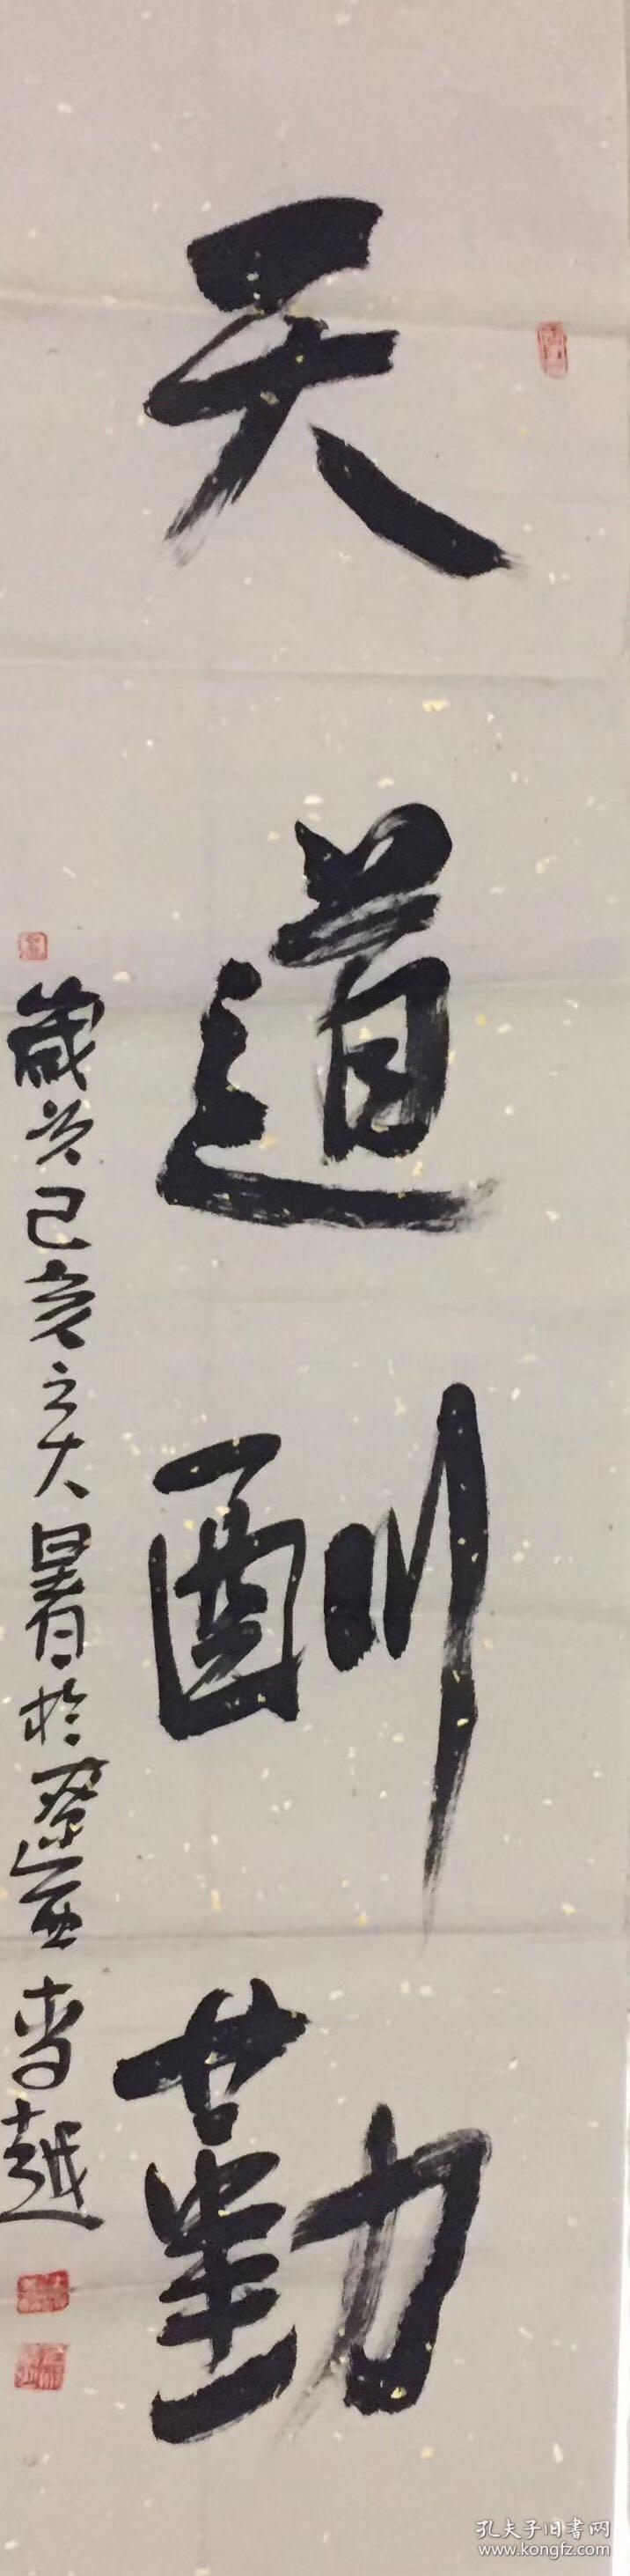 天道酬勤
歲次己亥之大暑於遼西李越
孔夫子旧書网
www.kongfz.com